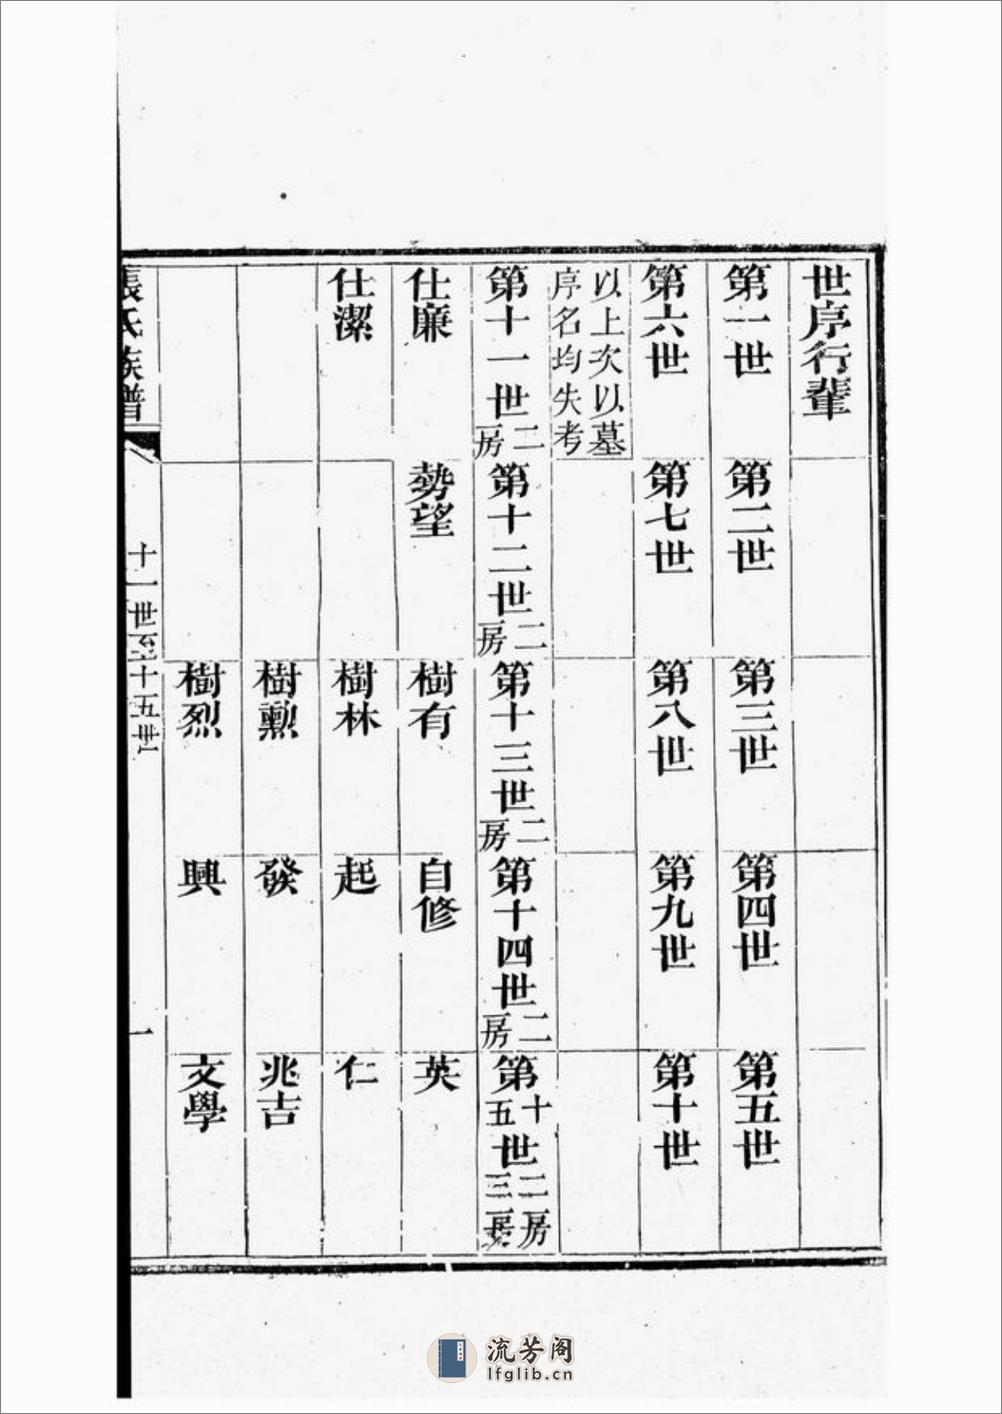 世序行輩
第一世 第二世 第三世 第四世 第五世
第六世 第七世 第八世 第九世 第十世
以上次以墓
序名均失考
第十一世二房 第十二世二房 第十三世二房 第十四世二房 第十五世二房三房
仕廉 勢望 樹有 自修 英
仕潔 樹林 起 仁
樹勳 發 兆吉
樹烈 興 文學
張氏族譜 十一世至十五世 一
流芳阁
lfglib.cn